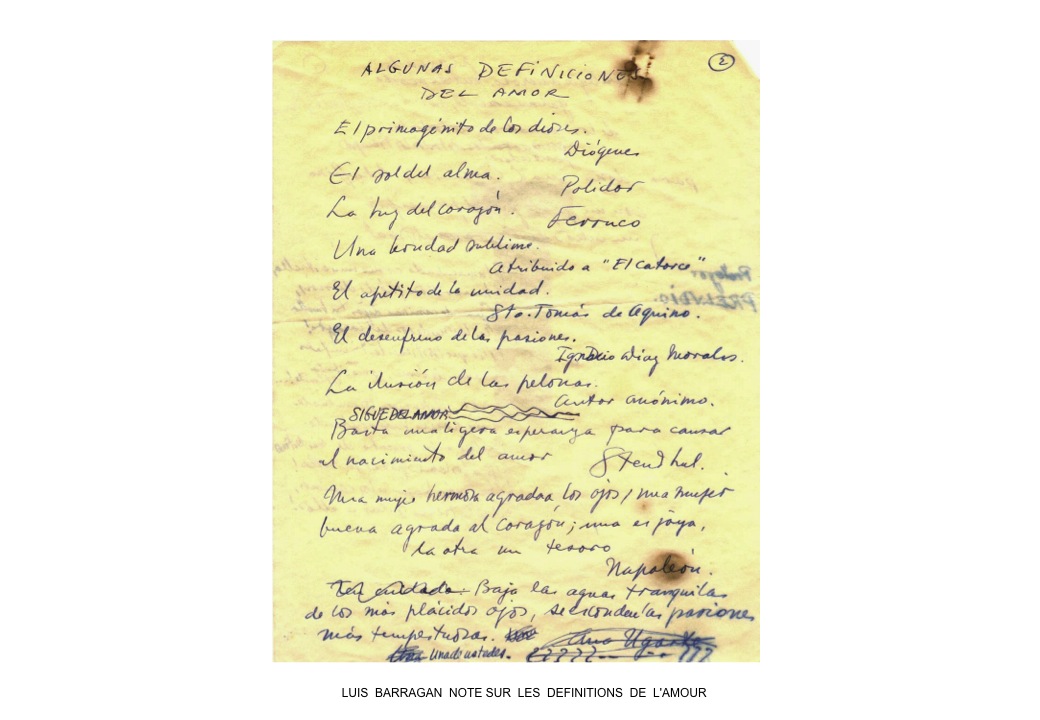 2
ALGUNAS DEFINICIONES
DEL AMOR
El primogénito de los dioses.
Diógenes
El sol del alma.
Polidor
La luz del corazón.
Ferruco
Una bondad sublime.
Atribuido a "El catorce"
El apetito de la unidad.
Sto. Tomás de Aquino.
El desenfreno de las pasiones.
Ignacio Díaz Morales.
La ilusión de las pelonas.
autor anónimo.
SIGUE DEL AMOR
Basta una ligera esperanza para causar
el nacimiento del amor Stendhal.
Una mujer hermosa agrada a los ojos, una mujer
buena agrada al corazón; una es joya,
la otra un tesoro
Napoleón.
Ten cuidado. Bajo las aguas tranquilas
de los más plácidos ojos, se esconden las pasiones
más tempestuosas. Ana Ugarte
Una de ustedes. ?????
LUIS BARRAGAN NOTE SUR LES DEFINITIONS DE L'AMOUR